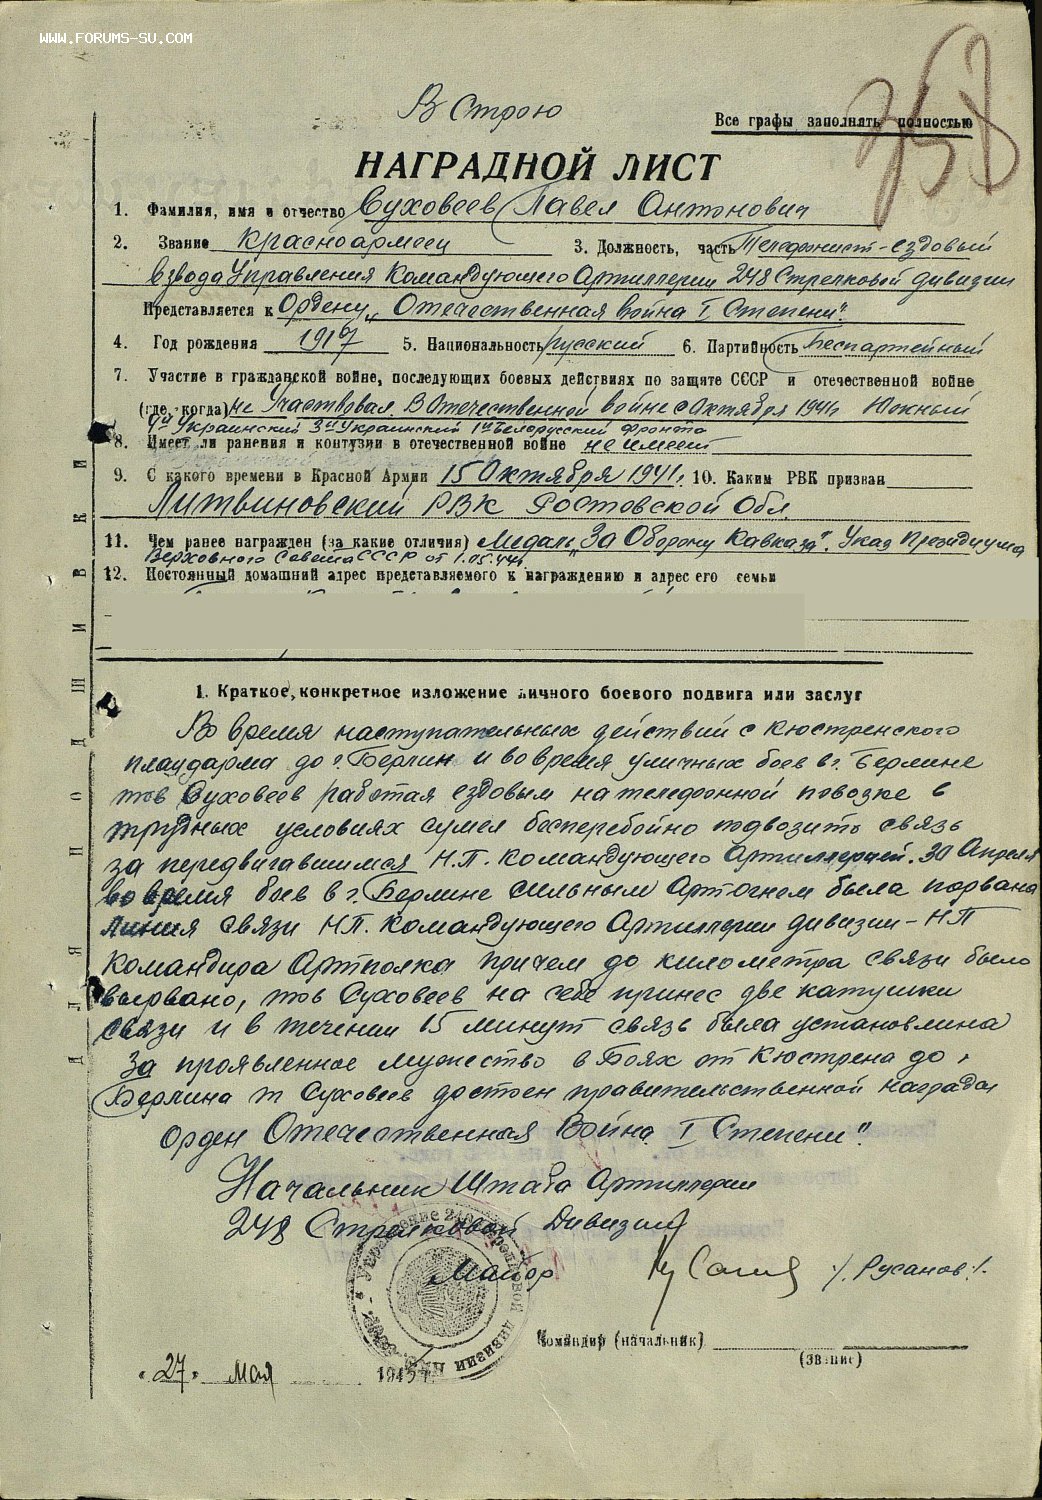 WWW.FORUMS-SU.COM
В Строю
358
Все графы заполнять полностью
НАГРАДНОЙ ЛИСТ
1. Фамилия, имя и отчество Суховеев Павел Антонович
2. Звание красноармеец 3. Должность, часть Телефонист-ездовый
взвода Управления Командующего Артиллерии 248 Стрелковой дивизии
Представляется к Ордену „Отечественная война I Степени".
4. Год рождения 1907 5. Национальность русский 6. Партийность Беспартейный
7. Участие в гражданской войне, последующих боевых действиях по защите СССР и отечественной войне
(где, когда) не Участвовал. В Отечественной войне с Октября 1941г Южный
4й Украинский 3й Украинский 1й Белорусский фронта
8. Имеет ли ранения и контузии в отечественной войне не имеет
9. С какого времени в Красной Армии 15 Октября 1941г. 10. Каким РВК призван
Литвиновский РВК Ростовской Обл.
11. Чем ранее награжден (за какие отличия) Медаль „За Оборону Кавказа". Указ Президиума
Верховного Совета СССР от 1.05.44г.
12. Постоянный домашний адрес представляемого к награждению и адрес его семьи
ДЛЯ ПОДШИВКИ
1. Краткое, конкретное изложение личного боевого подвига или заслуг
Во время наступательных действий с Кюстренского
плацдарма до г. Берлин и во время уличных боев в г. Берлине
тов Суховеев работая ездовым на телефонной повозке в
трудных условиях сумел бесперебойно подвозить связь
за передвигавшимся Н.П. командующего Артиллерией. 30 Апреля
во время боев в г. Берлине сильным Артогнем была порвана
линия связи Н.П. командующего Артиллерии дивизии - НП
командира Артполка причем до километра связи было
вырвано, тов Суховеев на себе принес две катушки
связи и в течении 15 минут связь была установлина
За проявленное мужество в Боях от Кюстрена до
Берлина т Суховеев достоен правительственной награды
Орден Отечественная Война I Степени".
Начальник Штаба Артиллерии
248 Стрелковой Дивизии
Майор /. Русанов./.
Командир (начальник)
(звание)
„27" мая 1945 г.